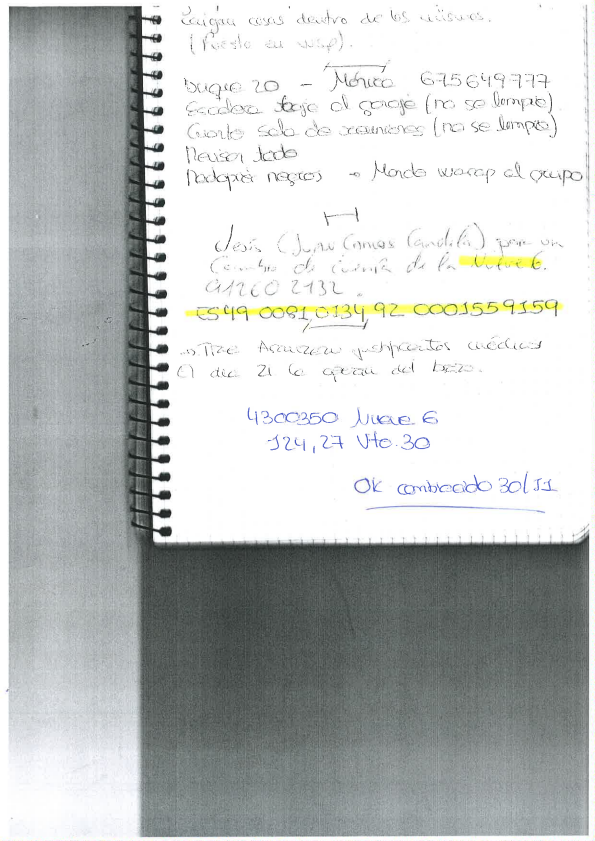 caigan cosas dentro de los mismos.
(Puesto en wsp).
Duque 20 - Mónica 675649777
Escalera bajo al garaje (no se limpio)
Cuarto sala de reuniones (no se limpio)
Revisar todo
Rodapié negros → Mando wasap al grupo
Jesús (Candela) para un
Cambio de cuenta de la Nueve 6.
A12602132.
ES49 0081 0134 92 0001559159
justificantes médicos
El dia 21 le operan del brazo.
4300350 Nueve 6
124,27 Vto. 30
Ok cambiado 30/11